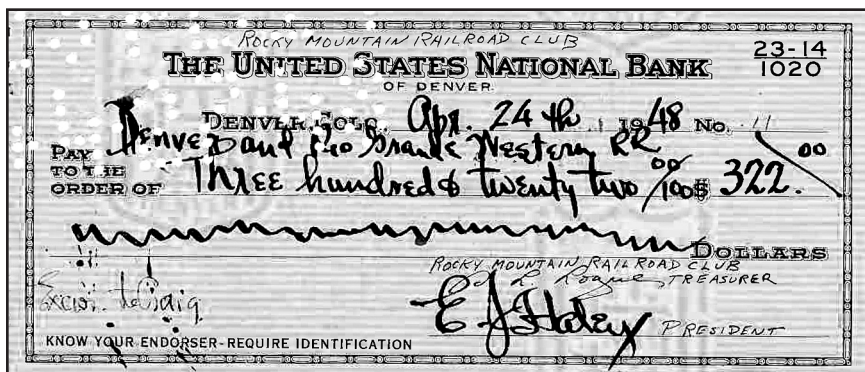 ROCKY MOUNTAIN RAILROAD CLUB
THE UNITED STATES NATIONAL BANK
OF DENVER
23-14
1020
DENVER, COLO. Apr. 24th 1948 No. 11
PAY TO THE ORDER OF Denver and Rio Grande Western RR
Three hundred & twenty two 00/100 $ 322.00
DOLLARS
ROCKY MOUNTAIN RAILROAD CLUB
TREASURER
Excur. to Craig
E J Haley PRESIDENT
KNOW YOUR ENDORSER-REQUIRE IDENTIFICATION